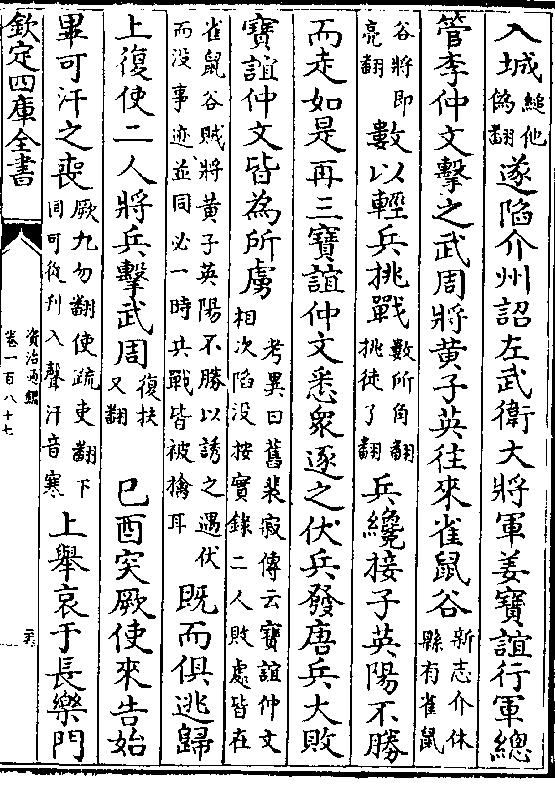 入城縋他偽翻遂陷介州詔左武衛大將軍姜寶誼行軍總
管李仲文擊之武周將黄子英往來雀鼠谷新志介休縣有雀鼠
谷將即亮翻數以輕兵挑戰數所角翻挑徒了翻兵纔接子英陽不勝
而走如是再三寶誼仲文悉衆逐之伏兵發唐兵大敗
寶誼仲文皆為所虜考異曰舊裴寂傳云寶誼仲文相次陷没按實錄二人敗處皆在
雀鼠谷賊將黄子英陽不勝以誘之遇伏而没事迹並同必一時共戰皆被擒耳既而俱逃歸
上復使二人將兵擊武周復扶又翻己酉突厥使來告始
畢可汗之喪厥九勿翻使疏吏翻下同可從刋入聲汗音寒上舉哀于長樂門
欽定四庫全書
資治通鑑
卷一百八十七